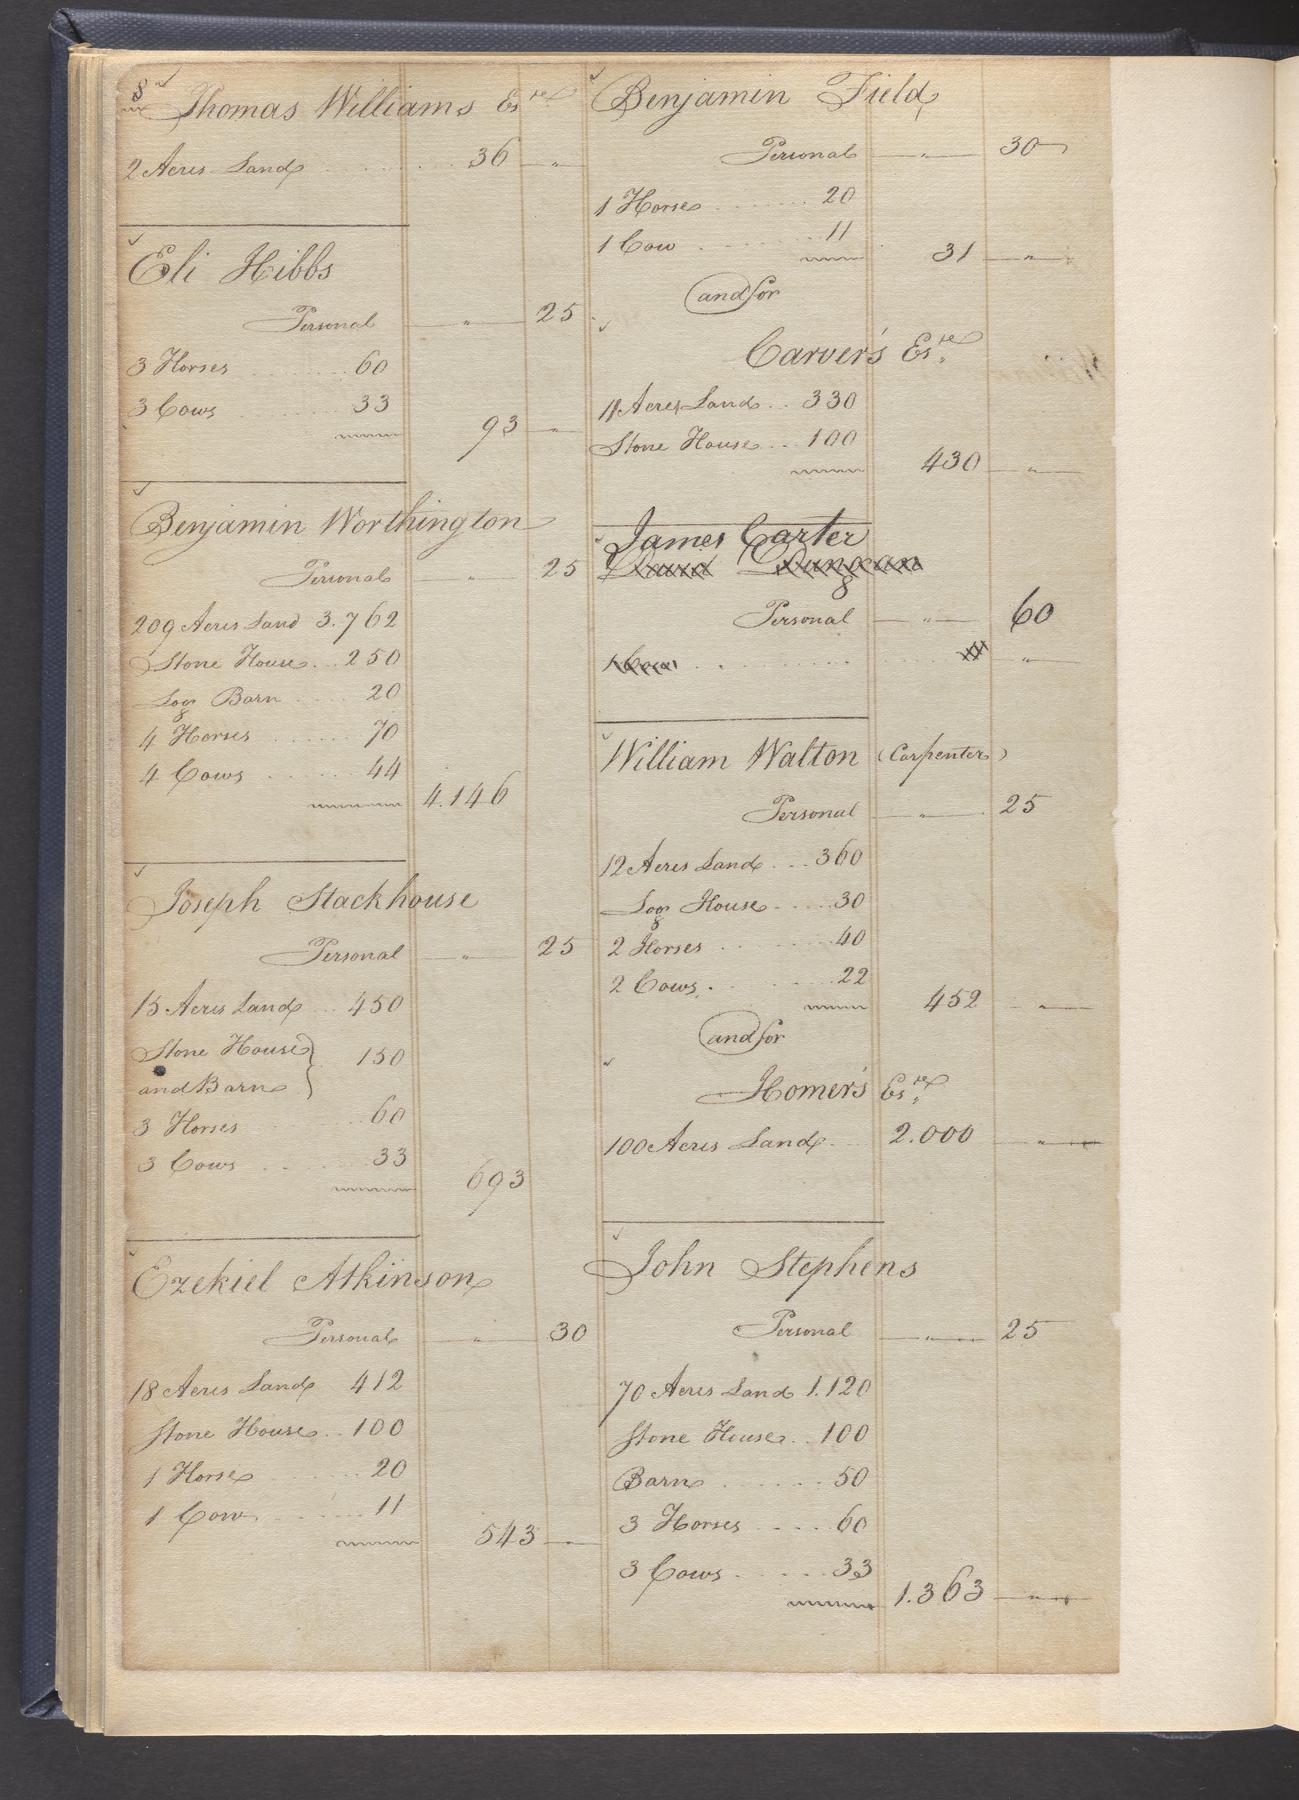 8
Thomas Williams Esre
2 Acres Land 36 — "
Eli Hibbs
Personal — " — 25
3 Horses 60
3 Cows 33
93 — "
Benjamin Worthington
Personal — " — 25
209 Acres Land 3.762
Stone House 250
Log Barn 20
4 Horses 70
4 Cows 44
4.146
Joseph Stackhouse
Personal — " — 25
15 Acres Land 450
Stone House }
and Barn } 150
3 Horses 60
3 Cows 33
693
Ezekiel Atkinson
Personal — " — 30
18 Acres Land 412
Stone House 100
1 Horse 20
1 Cow 11
543 —
Benjamin Field
Personal — " — 30
1 Horse 20
1 Cow 11
31 — "
and for
Carver's Esre
11 Acres Land 330
Stone House 100
430 — "
James Carter
David Duncan
Personal — " — 60
1 Cow "
William Walton (Carpenter)
Personal — " — 25
12 Acres Land 360
Log House 30
2 Horses 40
2 Cows 22
452 — "
and for
Homer's Esre
100 Acres Land 2.000 — "
John Stephens
Personal — " — 25
70 Acres Land 1.120
Stone House 100
Barn 50
3 Horses 60
3 Cows 33
1.363 — "